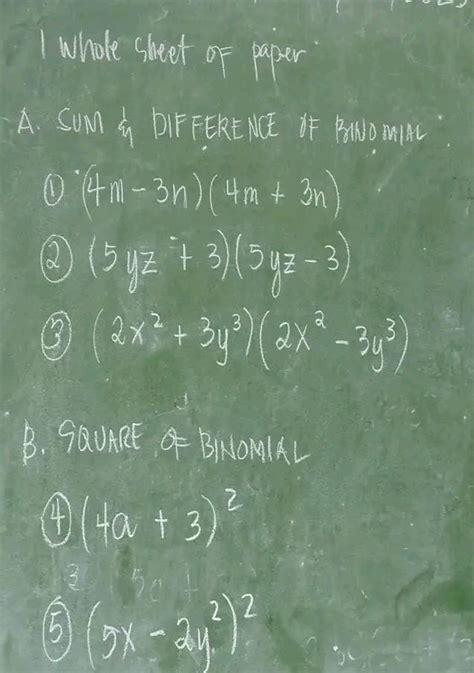 1 whole sheet of paper
A. SUM & DIFFERENCE OF BINOMIAL
① (4m - 3n)(4m + 3n)
② (5yz + 3)(5yz - 3)
③ (2x² + 3y³)(2x² - 3y³)
B. SQUARE OF BINOMIAL
④ (4a + 3)²
⑤ (5x - 2y²)²